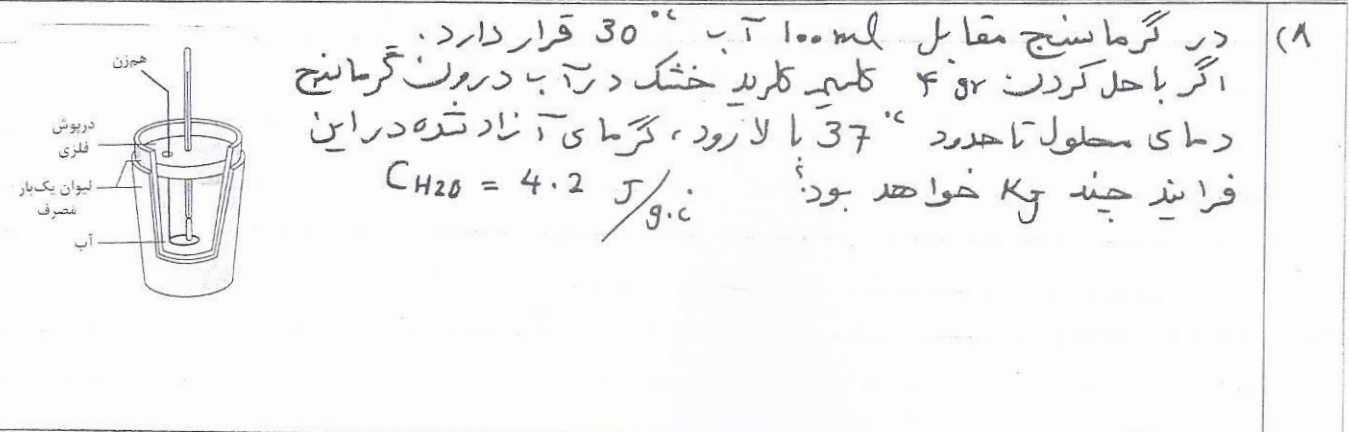 ۸)
در گرماسنج مقابل ۱۰۰ml آب 30 °c قرار دارد.
اگر با حل کردن ۴ gr کلسیم کلرید خشک در آب درون گرماسنج
دمای محلول تا حدود 37 °c بالا رود، گرمای آزاد شده در این
فرایند چند Kj خواهد بود؟ CH2O = 4.2 J/g.c
هم‌زن
درپوش
فلزی
لیوان یک‌بار
مصرف
آب